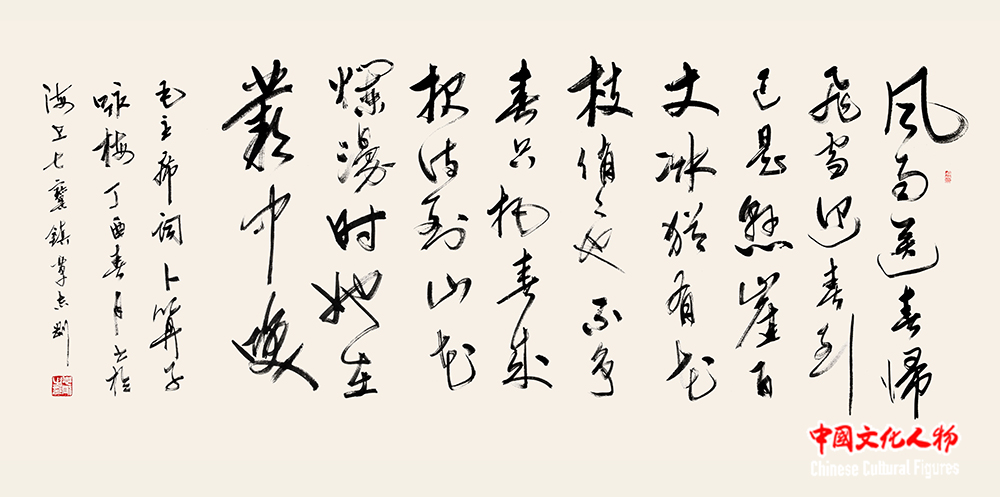 风雨送春帰
飛雪迎春到
已是懸崖百
丈冰猶有花
枝俏俏也不争
春只把春来
报待到山花
爛漫时她在
叢中笑
毛主席词卜算子
咏梅丁酉春月书于
海上七寶鎮
中國文化人物
Chinese Cultural Figures